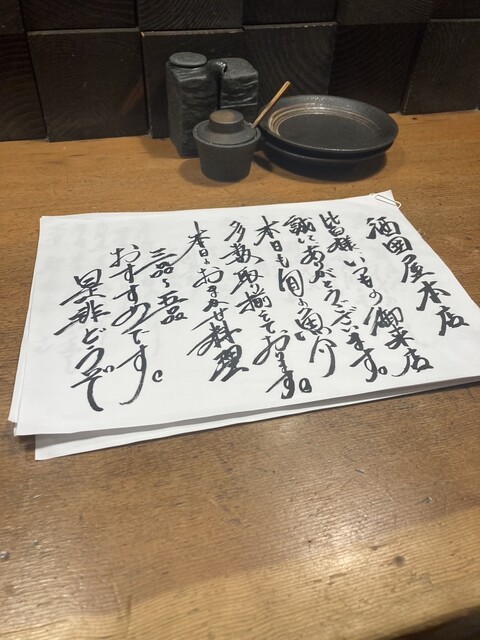 酒田屋本店
皆様いつもの御来店
誠にありがとうございます。
本日も自の魚介
多数取り揃えております。
本日のおまかせ料理
三品〜五品
おすすめです。
是非どうぞ